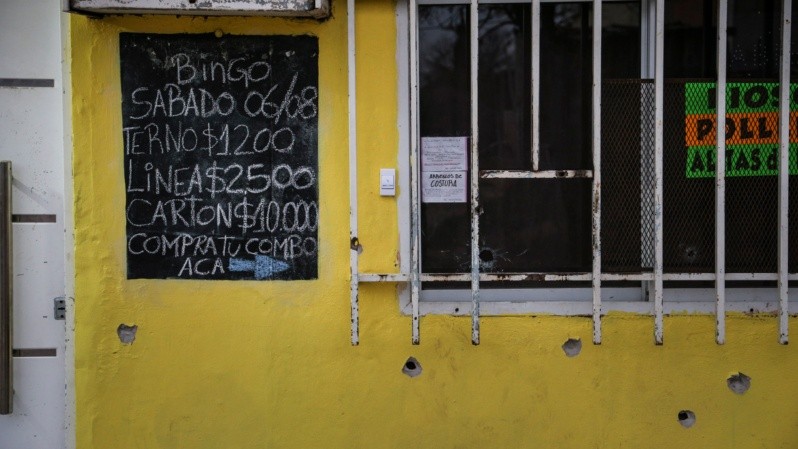 BINGO
SABADO 06/08
TERNO $1200
LINEA $2500
CARTON $10.000
COMPRA TU COMBO
ACA
ARREGLOS DE
COSTURA
KIOS
POLL
ALITAS d